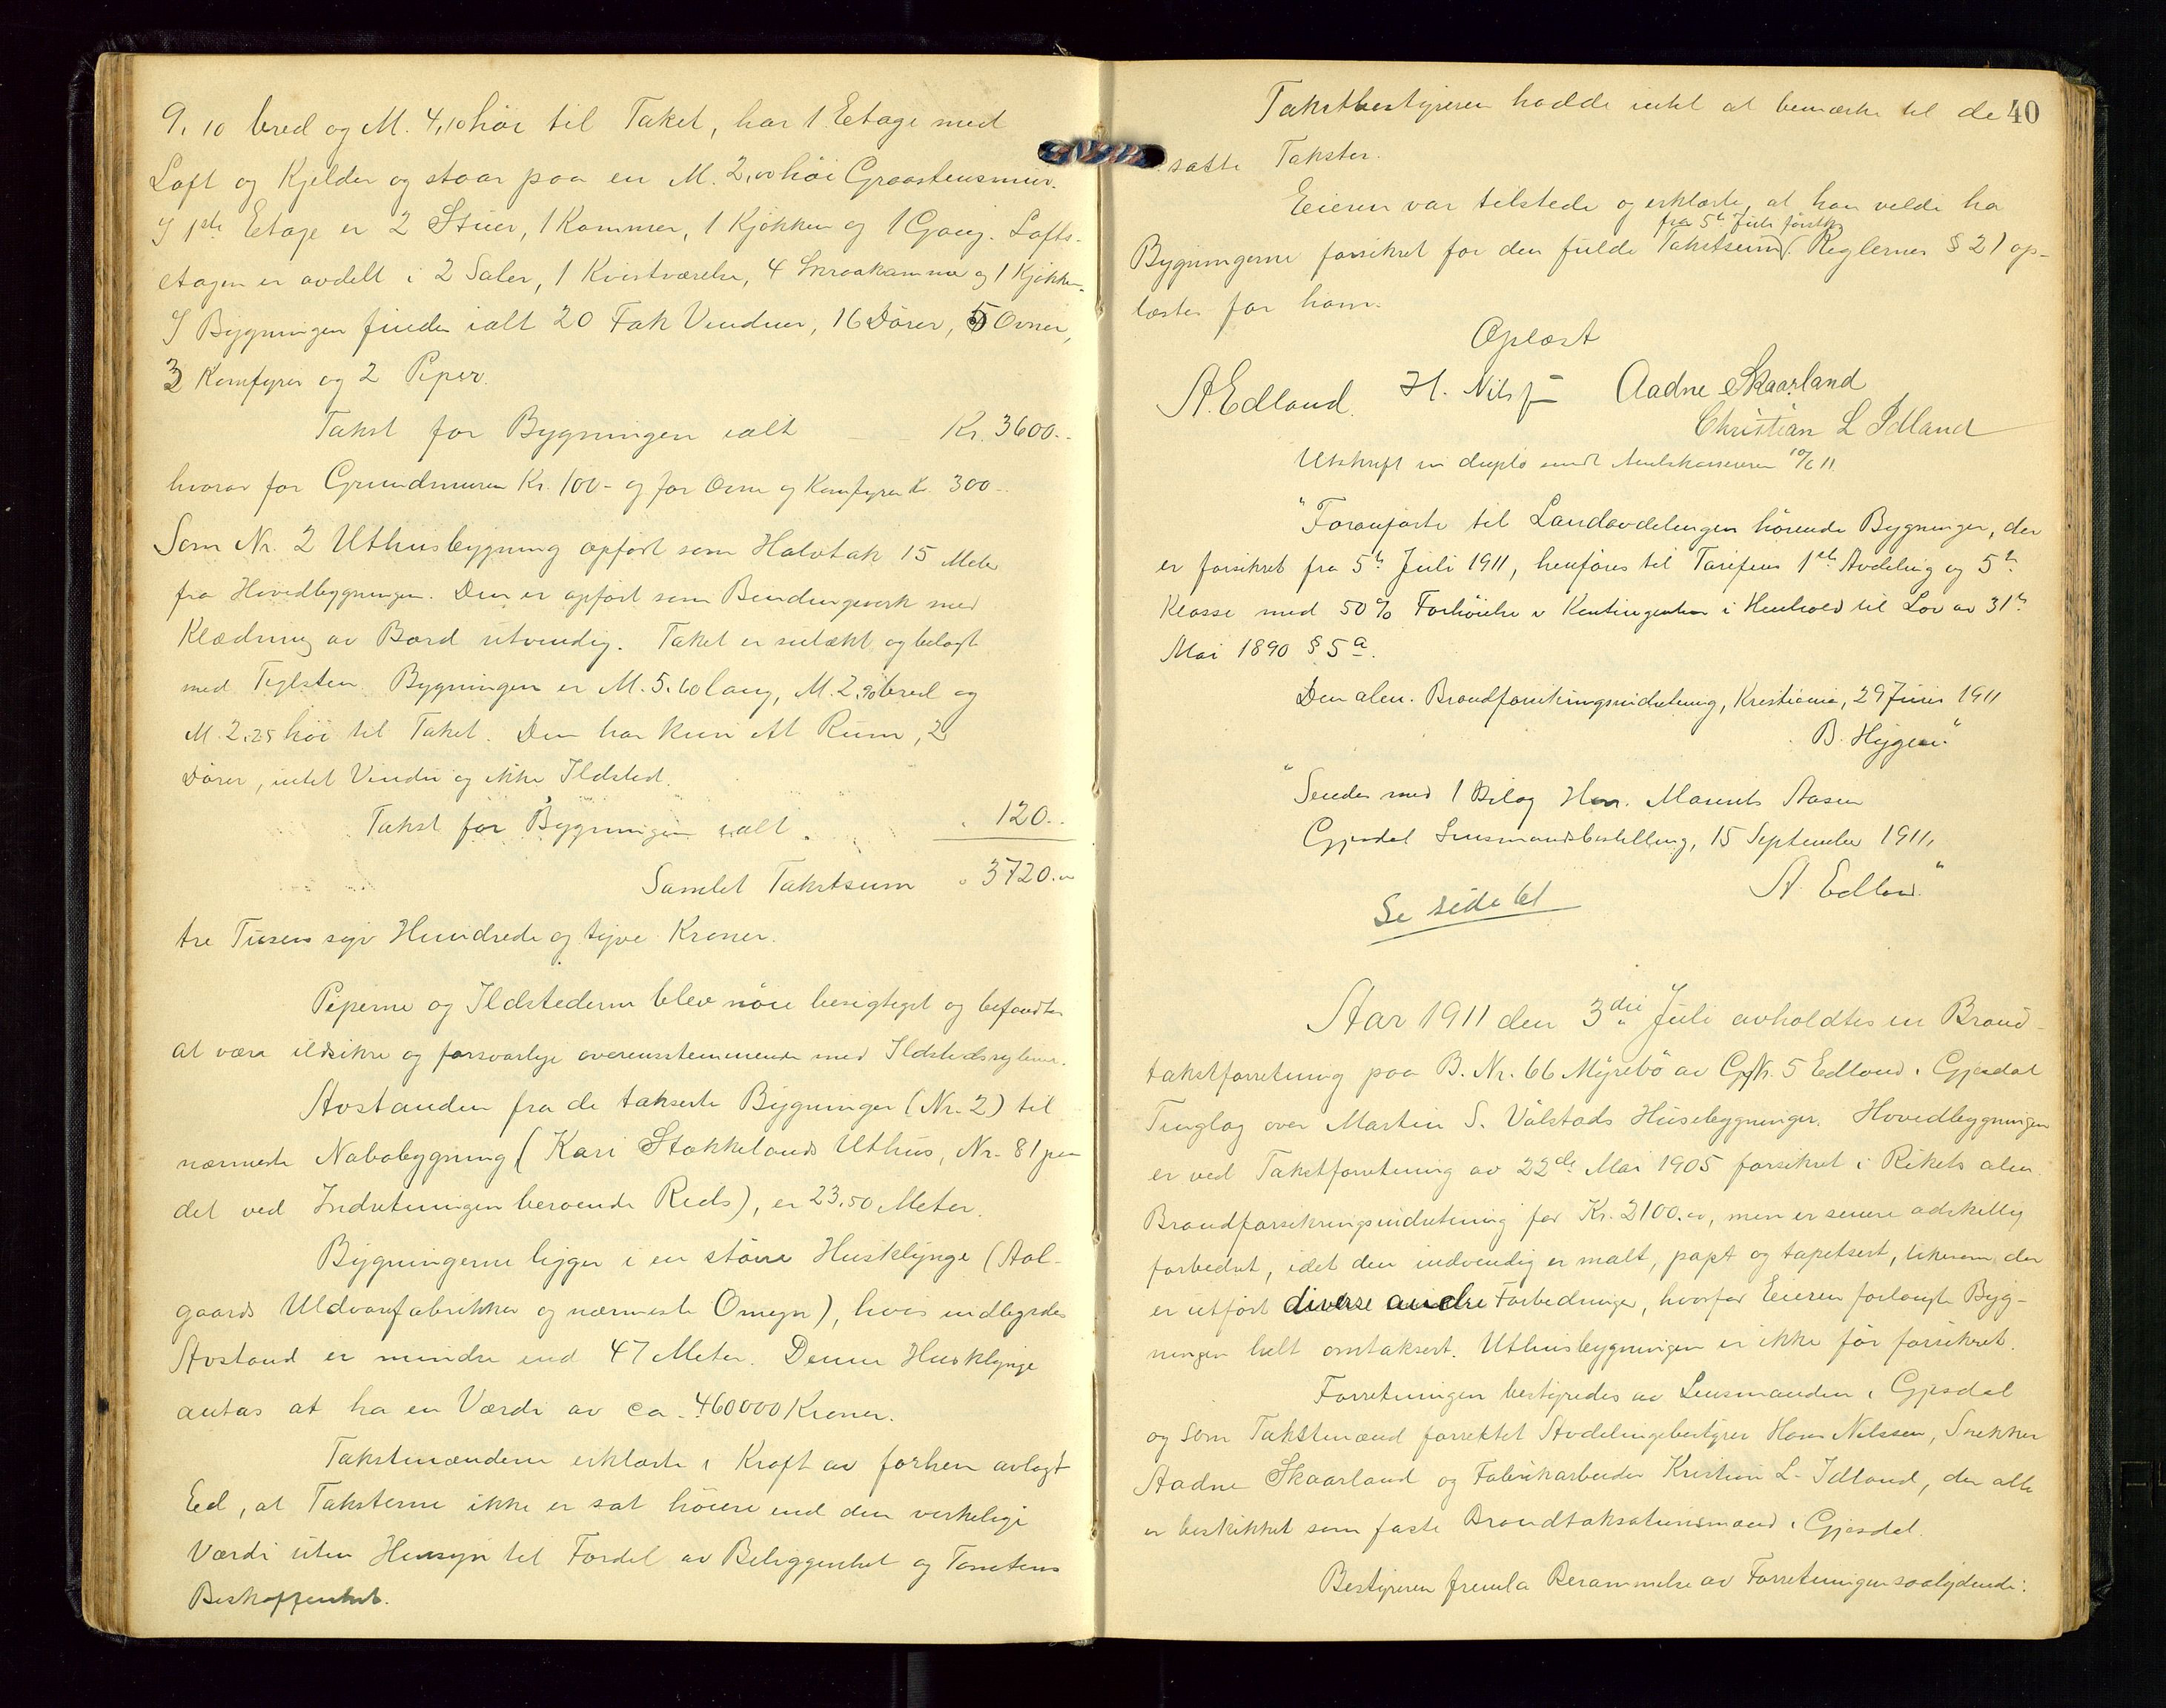 9,10 bred og M. 4,10 höi til Taket, har 1 Etage med
Loft og Kjelder og staar paa en M. 2,00 höi Graastensmur.
I 1ste Etage er 2 Stuer, 1 Kammer, 1 Kjökken og 1 Gang. Lofts-
etagen er avdelt i 2 Saler, 1 Kvistværelse, 4 Skraakammer og 1 Kjökken.
I Bygningen findes ialt 20 Fak Vinduer, 16 Dörer, 5 Ovner,
3 Komfyrer og 2 Piper.
Takst for Bygningen ialt Kr. 3600.-
hvorav for Grundmuren Kr. 100- og for Ovne og Komfyrer Kr. 300-
Som Nr. 2 Uthusbygning opfört som Halvtak 15 Meter
fra Hovedbygningen. Den er opfört som Bindingsverk med
Klædning av Bord utvendig. Taket er sutækt og belagt
med Teglsten. Bygningen er M. 5,60 lang, M. 2,90 bred og
M. 2,25 höi til Taket. Den har kun et Rum, 2
Dörer, intet Vindu og ikke Ildsted.
Takst for Bygningen ialt. " 120.-
Samlet Takstsum " 3720.00
tre Tusen syv Hundrede og tyve Kroner.
Piperne og Ildstederne blev nöie besigtiget og befandtes
at være ildsikre og forsvarlige overensstemmende med Ildstedsreglerne.
Avstanden fra de takserte Bygninger (Nr. 2) til
nærmeste Nabobygning (Kari Stokkelands Uthus, Nr. 81 paa
det ved Indretningen beroende Rids), er 23,50 Meter.
Bygningerne ligger i en större Husklynge (Aal-
gaards Uldvarefabrikker og nærmeste Omegn), hvis indbyrdes
Avstand er mindre end 47 Meter. Denne Husklynge
antas at ha en Værdi av ca. 460000 Kroner.
Takstmændene erklærte i Kraft av forhen avlagt
Ed, at Taksterne ikke er sat höiere end den virkelige
Værdi uten Hensyn til Fordel av Beliggenhet og Tomtens
Beskaffenhet.
40
Takstbestyreren hadde intet at bemærke til de
satte Takster.
Eieren var tilstede og erklærte, at han vilde ha
fra 5te Juli förstk.
Bygningerne forsikret for den fulde Takstsum. Reglernes § 21 op-
læstes for ham.
Oplæst
A. Edland. H. Nilssen Aadne Skaarland
Christian L Idland
Utskrift in duplo sendt Amtskassereren 10/6 11.
"Foranförte til Landavdelingen hörende Bygninger, der
er forsikret fra 5te Juli 1911, henföres til Tarifens 1ste Avdeling og 5te
Klasse med 50% Forhöielse i Kontingenten i Henhold til Lov av 31te
Mai 1890 § 5 a.
Den alm. Brandforsikringsindretning, Kristiania, 29 Juni 1911
B. Hygen."
"Sendes med 1 Bilag Herr. Maurits Aasen
Gjesdal Lensmandsbestilling, 15 September 1911,
A. Edland."
Se side 61
Aar 1911 den 3die Juli avholdtes en Brand-
takstforretning paa B. Nr. 66 Myrebö av G. Nr. 5 Edland i Gjesdal
Tinglag over Martin S. Válstads Husebygninger. Hovedbygningen
er ved Takstforretning av 22de Mai 1905 forsikret i Rikets alm.
Brandforsikringsindretning for Kr. 2100.00, men er senere adskillig
forbedret, idet den indvendig er malt, papt og tapetsert, likesom der
er utfört diverse andre Forbedringer, hvorfor Eieren forlangte Byg-
ningen helt omtaksert. Uthusbygningen er ikke för forsikret.
Forretningen bestyredes av Lensmanden i Gjesdal
og som Takstmænd forrettet Avdelingsbestyrer Hans Nilssen, Snekker
Aadne Skaarland og Fabrikarbeider Kristian L. Idland, der alle
er beskikket som faste Brandtaksationsmænd i Gjesdal.
Bestyreren fremla Berammelse av Forretningen saalydende: